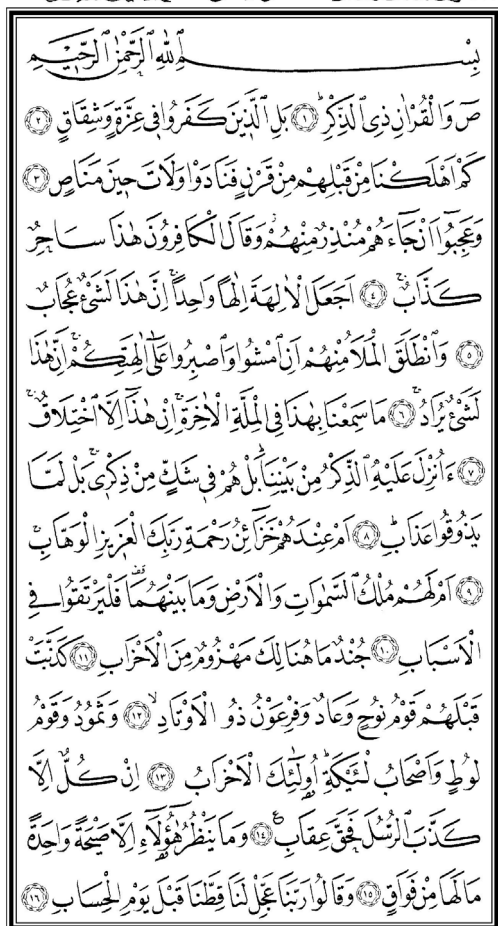 بِسْمِ اللّٰهِ الرَّحْمٰنِ الرَّحٖيمِ
صٓ وَالْقُرْاٰنِ ذِي الذِّكْرِۜ ﴿١﴾ بَلِ الَّذٖينَ كَفَرُوا فٖي عِزَّةٍ وَشِقَاقٍ ﴿٢﴾
كَمْ اَهْلَكْنَا مِنْ قَبْلِهِمْ مِنْ قَرْنٍ فَنَادَوْا وَلَاتَ حٖينَ مَنَاصٍ ﴿٣﴾
وَعَجِبُٓوا اَنْ جَٓاءَهُمْ مُنْذِرٌ مِنْهُمْۘ وَقَالَ الْكَافِرُونَ هٰذَا سَاحِرٌ
كَذَّابٌۚ ﴿٤﴾ اَجَعَلَ الْاٰلِهَةَ اِلٰهًا وَاحِدًاۚ اِنَّ هٰذَا لَشَيْءٌ عُجَابٌ
﴿٥﴾ وَانْطَلَقَ الْمَلَأُ مِنْهُمْ اَنِ امْشُوا وَاصْبِرُوا عَلٰٓى اٰلِهَتِكُمْۚ اِنَّ هٰذَا
لَشَيْءٌ يُرَادُۚ ﴿٦﴾ مَا سَمِعْنَا بِهٰذَا فِي الْمِلَّةِ الْاٰخِرَةِۚ اِنْ هٰذَٓا اِلَّا اخْتِلَاقٌۚ
﴿٧﴾ ءَاُنْزِلَ عَلَيْهِ الذِّكْرُ مِنْ بَيْنِنَاۜ بَلْ هُمْ فٖي شَكٍّ مِنْ ذِكْرٖيۚ بَلْ لَمَّا
يَذُوقُوا عَذَابِۜ ﴿٨﴾ اَمْ عِنْدَهُمْ خَزَٓائِنُ رَحْمَةِ رَبِّكَ الْعَزٖيزِ الْوَهَّابِۚ
﴿٩﴾ اَمْ لَهُمْ مُلْكُ السَّمٰوَاتِ وَالْاَرْضِ وَمَا بَيْنَهُمَا۠ فَلْيَرْتَقُوا فِي
الْاَسْبَابِ ﴿١٠﴾ جُنْدٌ مَا هُنَالِكَ مَهْزُومٌ مِنَ الْاَحْزَابِ ﴿١١﴾ كَذَّبَتْ
قَبْلَهُمْ قَوْمُ نُوحٍ وَعَادٌ وَفِرْعَوْنُ ذُو الْاَوْتَادِۙ ﴿١٢﴾ وَثَمُودُ وَقَوْمُ
لُوطٍ وَاَصْحَابُ لْـَٔيْكَةِۜ اُو۬لٰٓئِكَ الْاَحْزَابُ ﴿١٣﴾ اِنْ كُلٌّ اِلَّا
كَذَّبَ الرُّسُلَ فَحَقَّ عِقَابِ۟ ﴿١٤﴾ وَمَا يَنْظُرُ هٰٓؤُ۬لَٓاءِ اِلَّا صَيْحَةً وَاحِدَةً
مَا لَهَا مِنْ فَوَاقٍ ﴿١٥﴾ وَقَالُوا رَبَّنَا عَجِّلْ لَنَا قِطَّنَا قَبْلَ يَوْمِ الْحِسَابِ ﴿١٦﴾